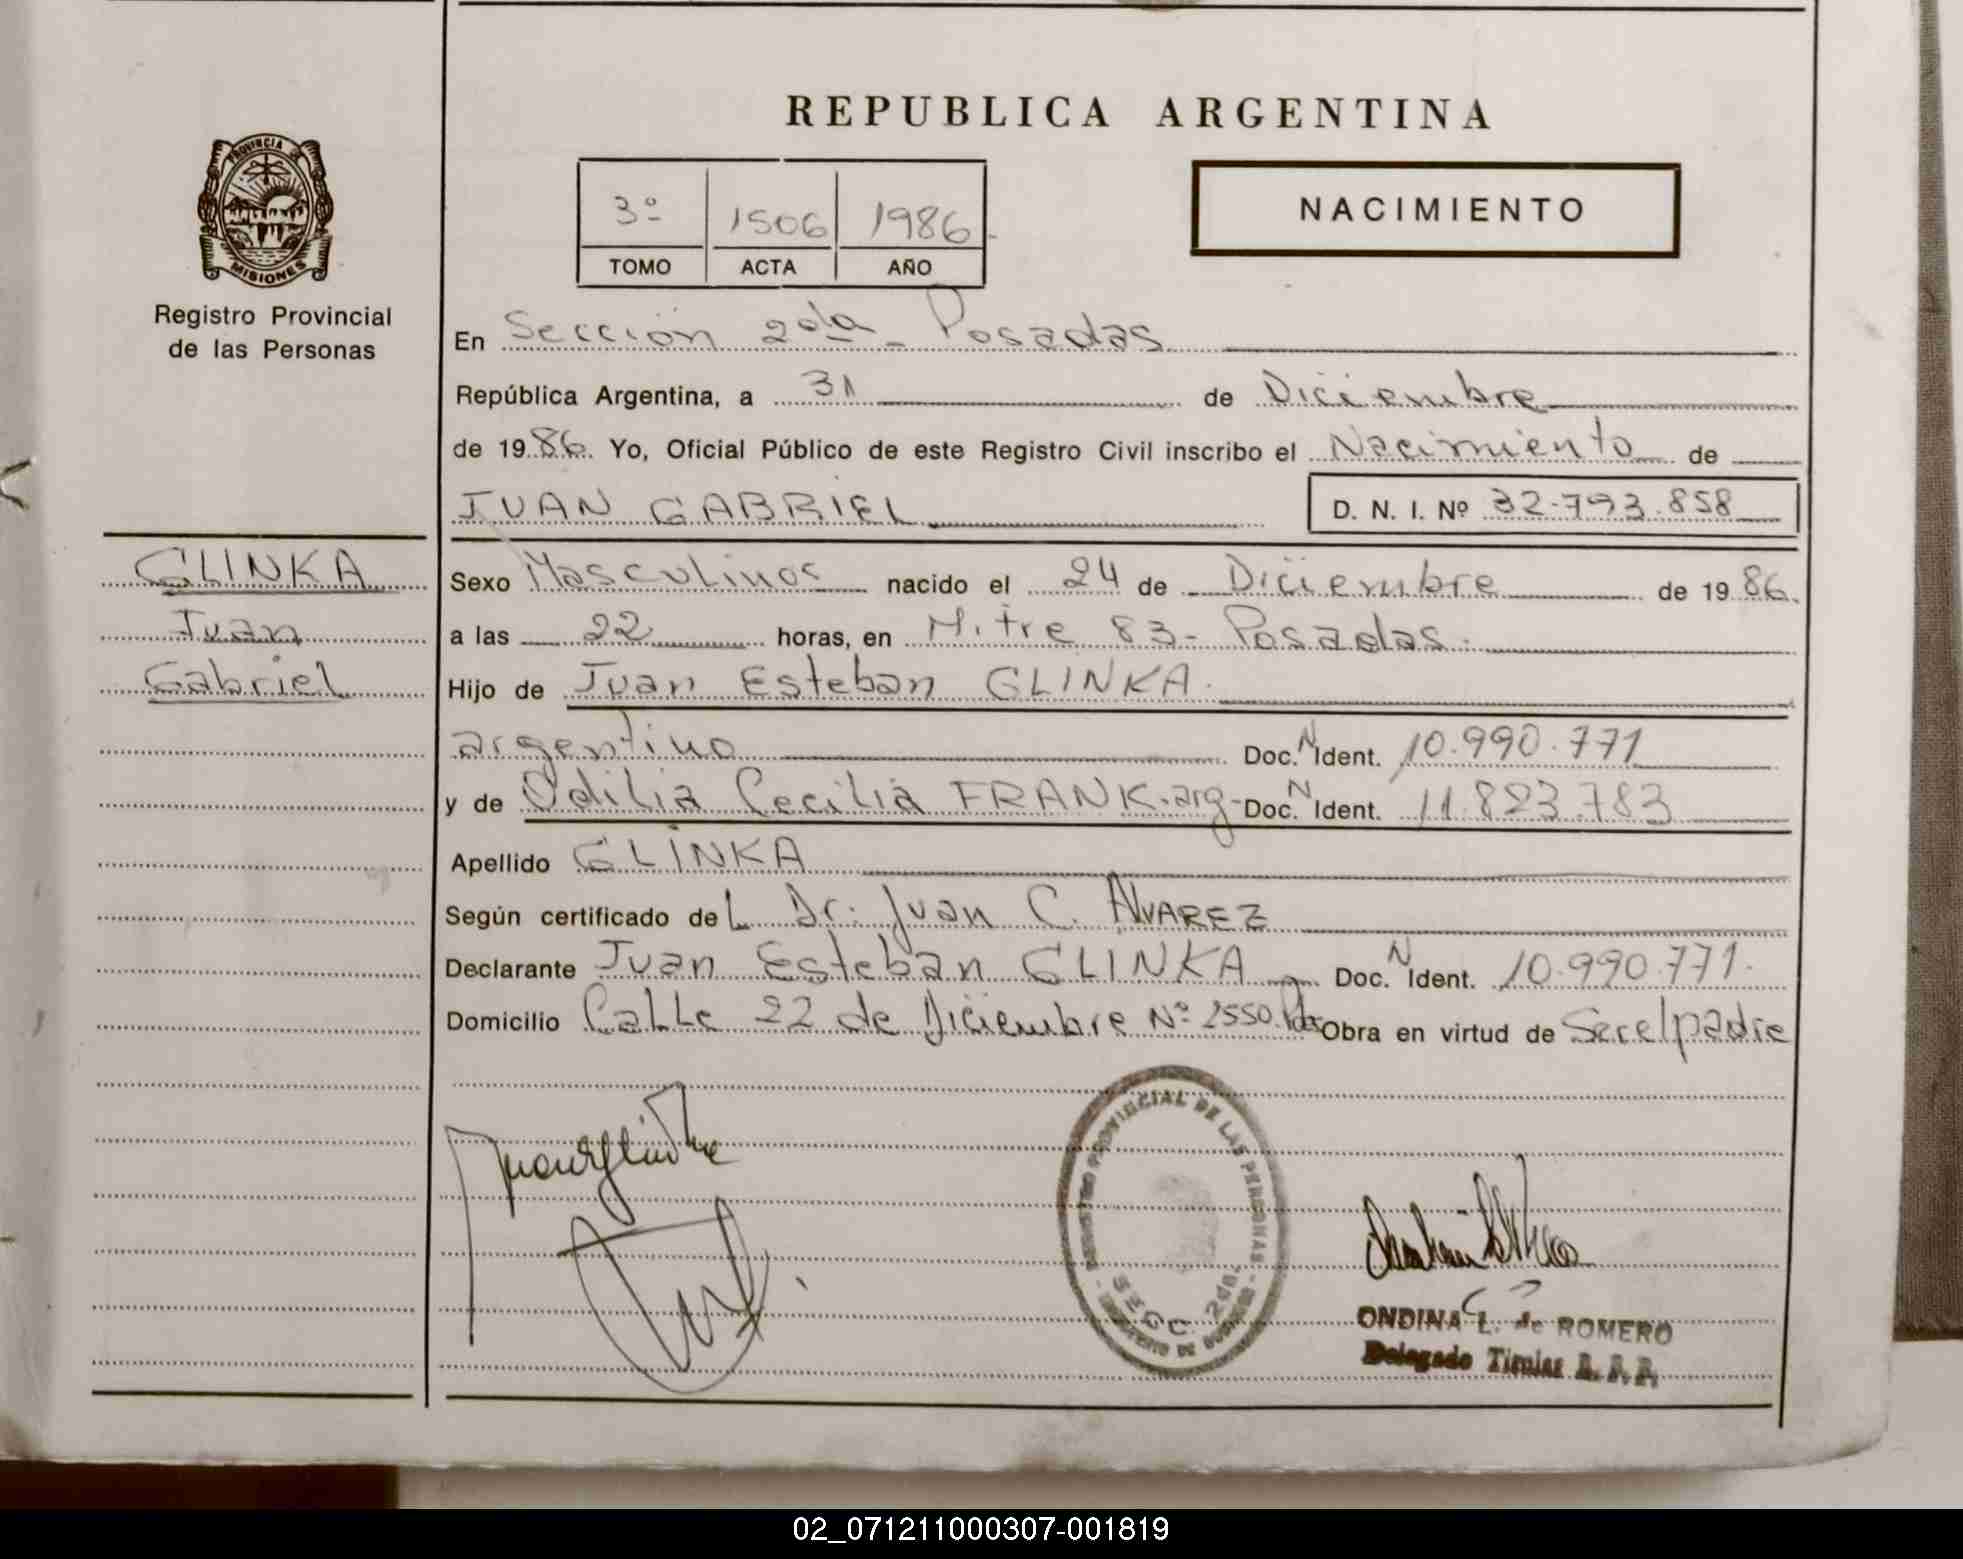 REPUBLICA ARGENTINA
PROVINCIA DE
MISIONES
Registro Provincial
de las Personas
3º 1506 1986
TOMO ACTA AÑO
NACIMIENTO
En Sección 2da - Posadas
República Argentina, a 31 de Diciembre
de 1986. Yo, Oficial Público de este Registro Civil inscribo el Nacimiento de
JUAN GABRIEL D. N. I. Nº 32.793.858
GLINKA
Juan
Gabriel
Sexo Masculinos nacido el 24 de Diciembre de 1986.
a las 22 horas, en Mitre 83 - Posadas.
Hijo de Juan Esteban GLINKA.
argentino Doc. N Ident. 10.990.771
y de Odilia Cecilia FRANK. arg- Doc. N Ident. 11.823.783
Apellido GLINKA
Según certificado del Dr. Juan C. ALVAREZ
Declarante Juan Esteban GLINKA Doc. N Ident. 10.990.771.
Domicilio Calle 22 de Diciembre Nº 2550. Pdas Obra en virtud de Ser el padre
REGISTRO PROVINCIAL DE LAS PERSONAS
SECC. 2da.
ONDINA L. de ROMERO
Delegado Titular
02_071211000307-001819